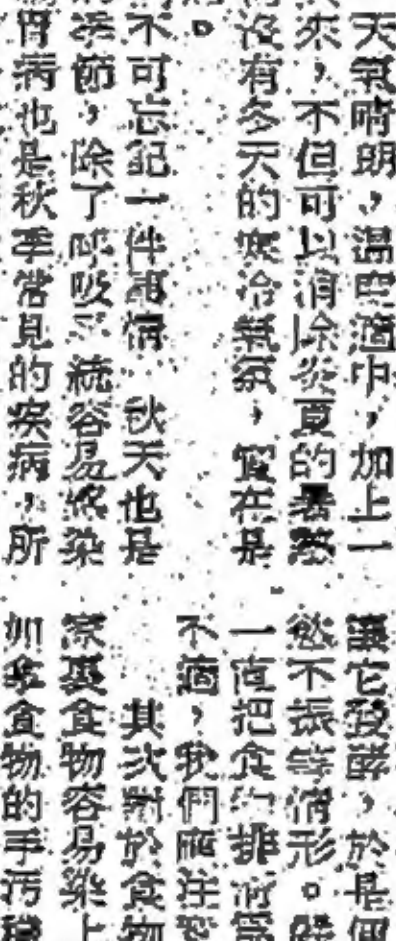 天氣晴朗，溫度適中，加上一
來，不但可以消除炎夏的暑熱
沒有冬天的寒冷氣氛，實在是
。
不可忘記一件事情 秋天也是
季節，除了呼吸系統容易感染
胃病也是秋季常見的疾病，所
讓它發酵，於是
慾不振等情形。
一直把食物排
不適，我們應注意
其次對於食物
家裏食物容易染上
如拿食物的手污穢